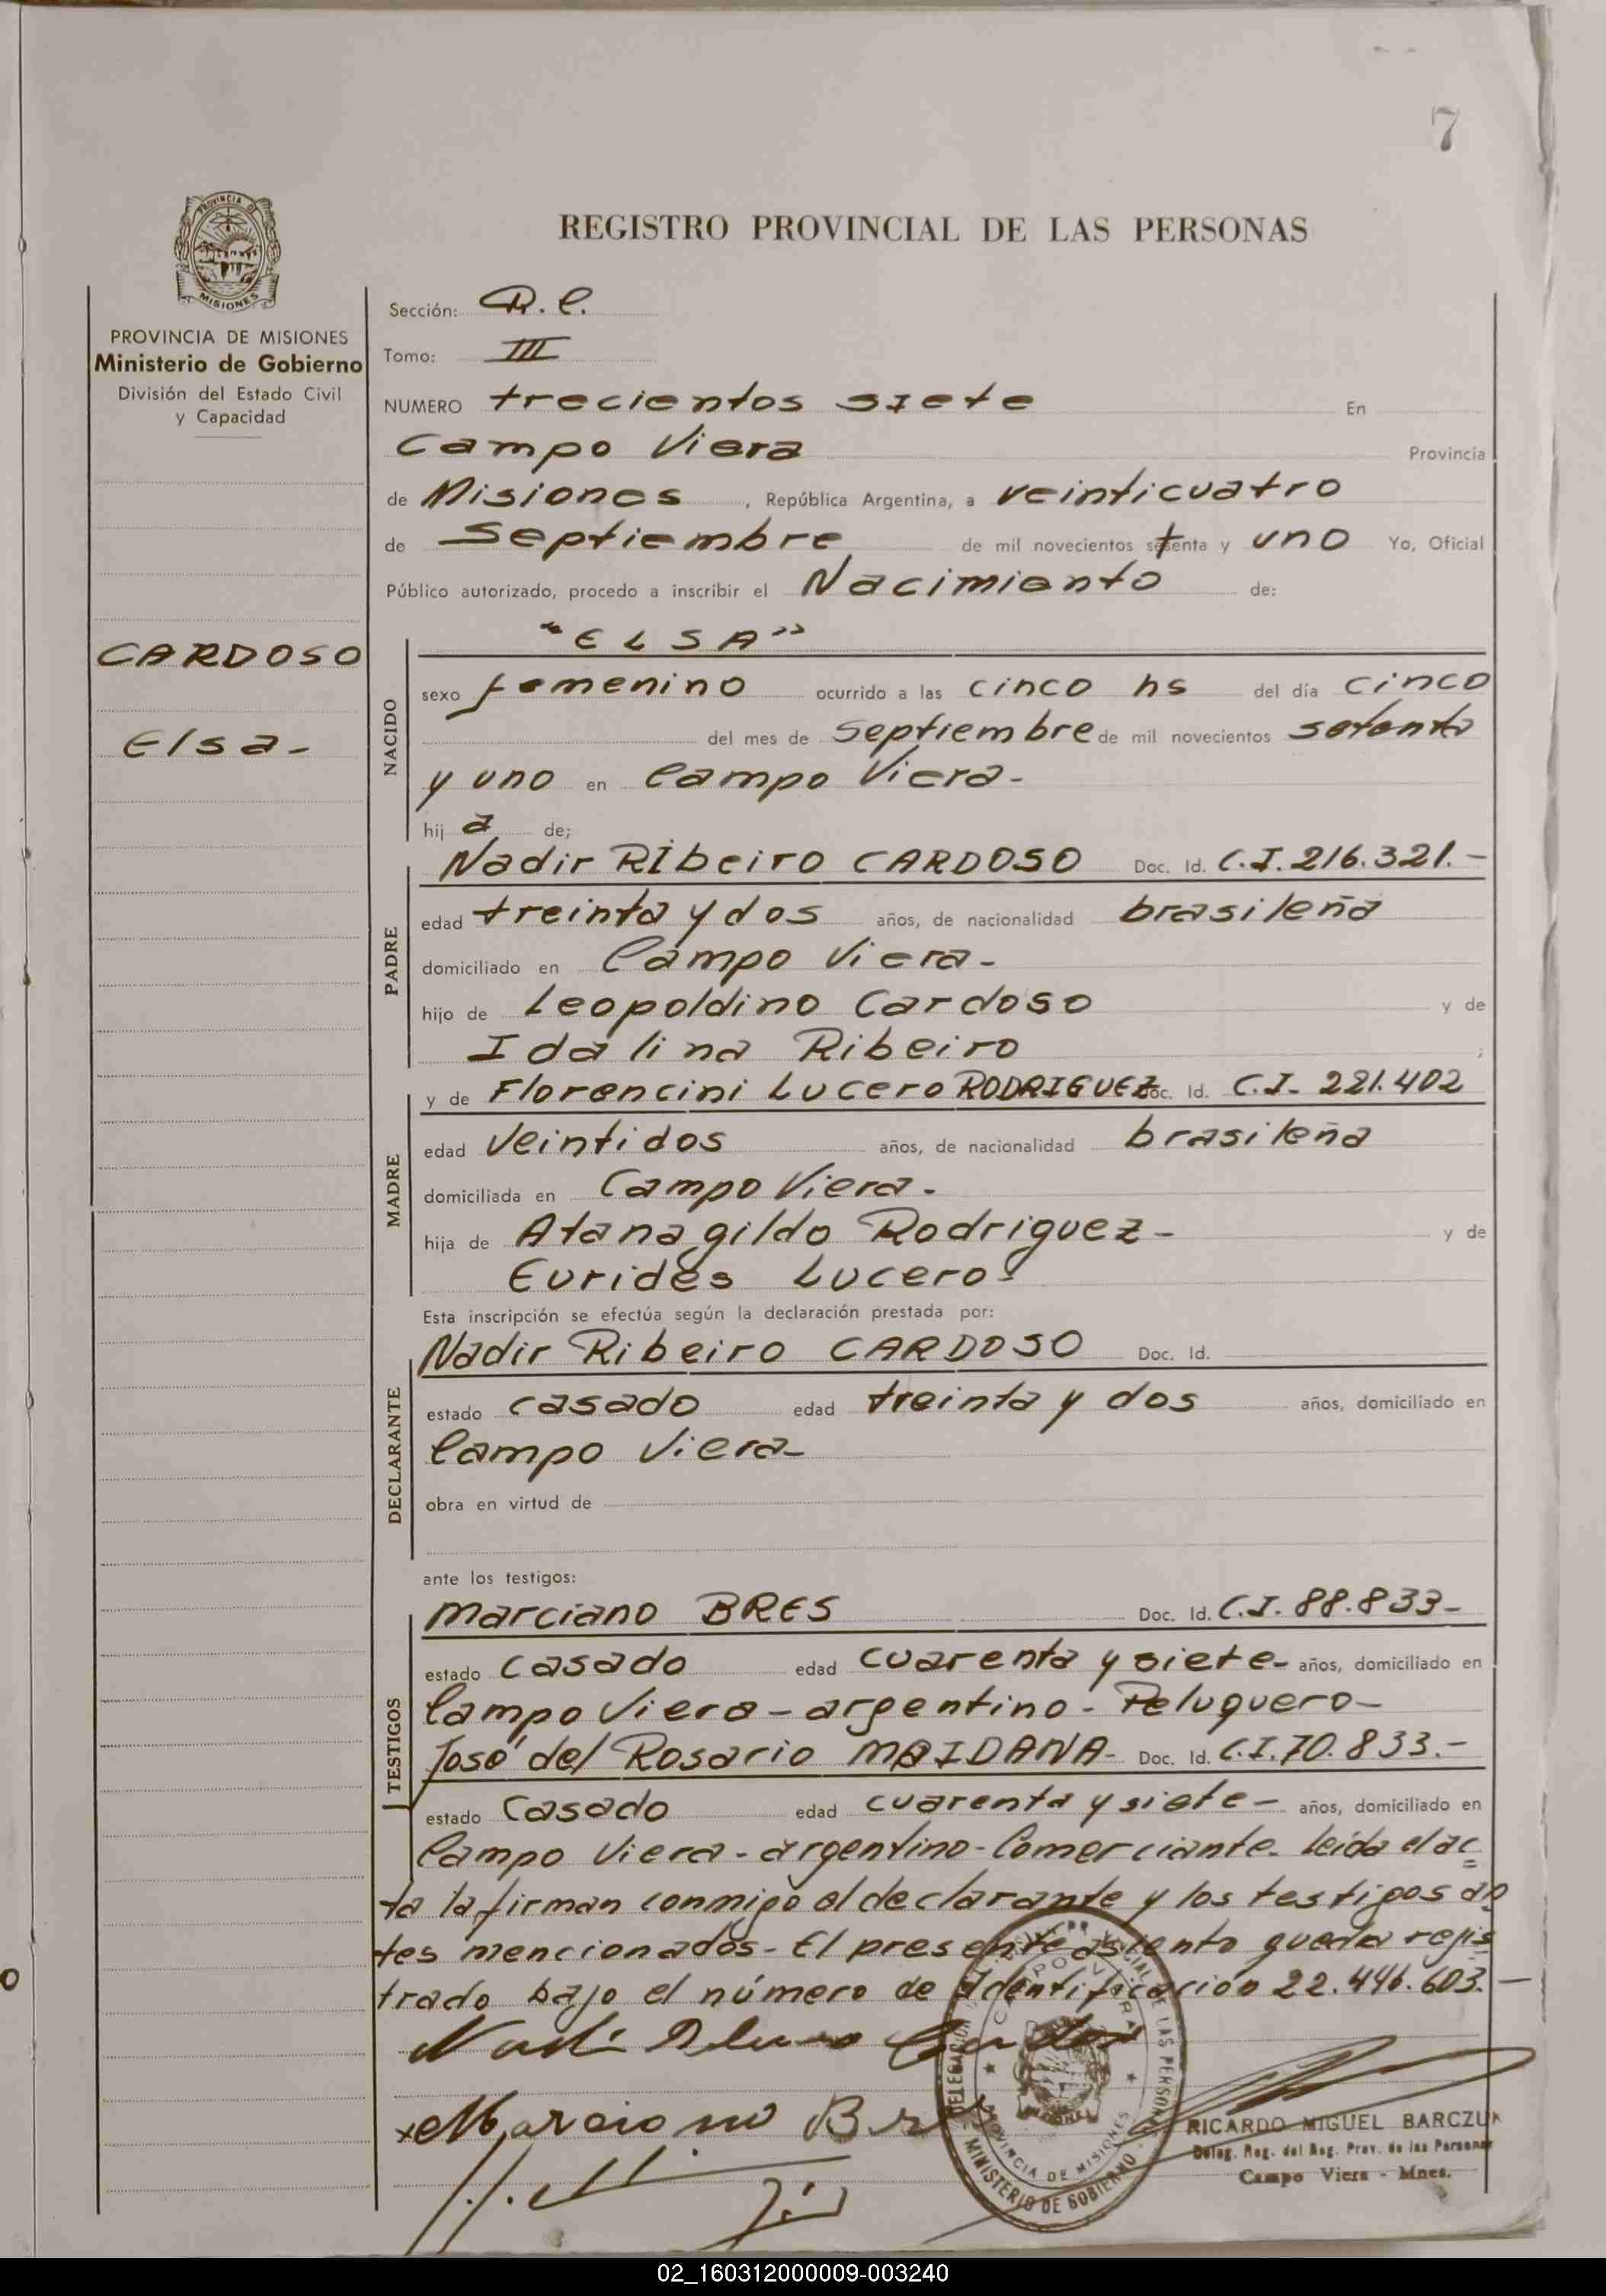 7
REGISTRO PROVINCIAL DE LAS PERSONAS
PROVINCIA DE MISIONES
PROVINCIA DE MISIONES
Ministerio de Gobierno
División del Estado Civil
y Capacidad
CARDOSO
Elsa-
Sección: R.C.
Tomo: III
NUMERO trecientos siete En
Campo Viera Provincia
de Misiones, República Argentina, a veinticuatro
de Septiembre de mil novecientos setenta y uno Yo, Oficial
Público autorizado, procedo a inscribir el Nacimiento de:
"ELSA"
NACIDO
sexo femenino ocurrido a las cinco hs del día cinco
del mes de septiembre de mil novecientos setenta
y uno en Campo Viera-
hij a de;
PADRE
Nadir Ribeiro CARDOSO Doc. Id. C.I. 216.321.-
edad treinta y dos años, de nacionalidad brasileña
domiciliado en Campo Viera-
hijo de Leopoldino Cardoso y de
Idalina Ribeiro ;
MADRE
y de Florencini Lucero RODRIGUEZ Doc. Id. C.I- 221.402
edad veintidos años, de nacionalidad brasileña
domiciliada en Campo Viera-
hija de Atanagildo Rodriguez- y de
Eurides Lucero-
Esta inscripción se efectúa según la declaración prestada por:
DECLARANTE
Nadir Ribeiro CARDOSO Doc. Id.
estado casado edad treinta y dos años, domiciliado en
Campo Viera-
obra en virtud de
ante los testigos:
TESTIGOS
Marciano BRES Doc. Id. C.I. 88.833-
estado casado edad cuarenta y siete- años, domiciliado en
Campo Viera-argentino-Peluquero-
José del Rosario MAIDANA- Doc. Id. C.I. 70.833.-
estado casado edad cuarenta y siete- años, domiciliado en
Campo Viera-argentino-Comerciante. Leída el ac=
ta la firman conmigo el declarante y los testigos an
tes mencionados-El presente asiento queda regis
trado bajo el número de Identificación 22.446.603.-
Marciano Bres
MINISTERIO DE GOBIERNO
PROVINCIA DE MISIONES
RICARDO MIGUEL BARCZUK
Deleg. Reg. del Reg. Prov. de las Personas
Campo Viera - Mnes.
02_160312000009-003240